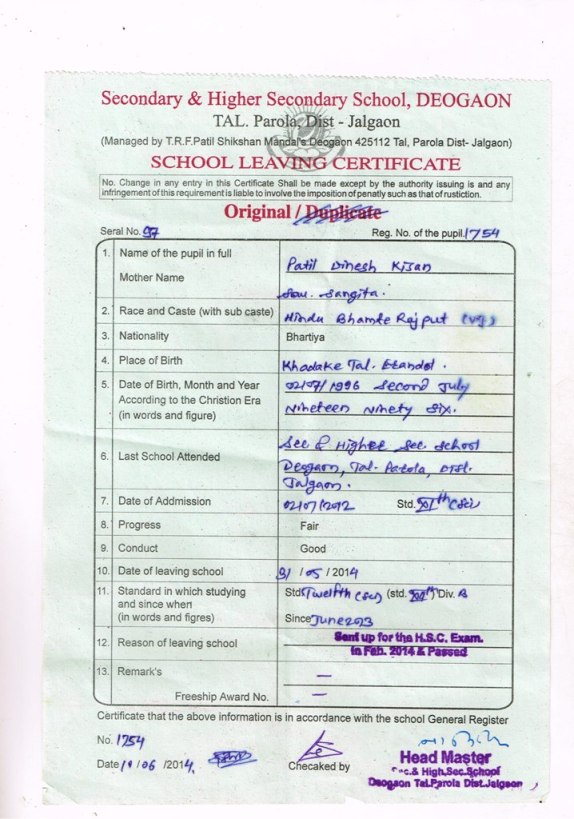 Secondary & Higher Secondary School, DEOGAON
TAL. Parola, Dist - Jalgaon
(Managed by T.R.F.Patil Shikshan Mandal's Deogaon 425112 Tal, Parola Dist- Jalgaon)
SCHOOL LEAVING CERTIFICATE
No. Change in any entry in this Certificate Shall be made except by the authority issuing is and any
infringement of this requirement is liable to involve the imposition of penatly such as that of rustiction.
Original / Duplicate
Seral No. 97 Reg. No. of the pupil. 1754
1. Name of the pupil in full Patil Dinesh Kisan
Mother Name Sou. Sangita.
2. Race and Caste (with sub caste) Hindu Bhamte Rajput
3. Nationality Bhartiya
4. Place of Birth Khadake Tal. Erandol.
5. Date of Birth, Month and Year 02/07/1996 Second July
According to the Christion Era Nineteen Ninety Six.
(in words and figure)
6. Last School Attended Sec & Higher Sec. School
Deogaon, Tal. Parola, Dist.
Jalgaon.
7. Date of Addmission 02/07/2012 Std. XIth (Sci)
8. Progress Fair
9. Conduct Good
10. Date of leaving school 31 / 05 / 2014
11. Standard in which studying Std. Twelfth (Sci) (std. XIIth) Div. B
and since when
(in words and figres) Since June 2013
12. Reason of leaving school Sent up for the H.S.C. Exam.
in Feb. 2014 & Passed
13. Remark's —
Freeship Award No. —
Certificate that the above information is in accordance with the school General Register
No. 1754
Date /06 /2014, Checaked by Head Master
Sec.& High.Sec.School
Deogaon Tal.Parola Dist.Jalgaon